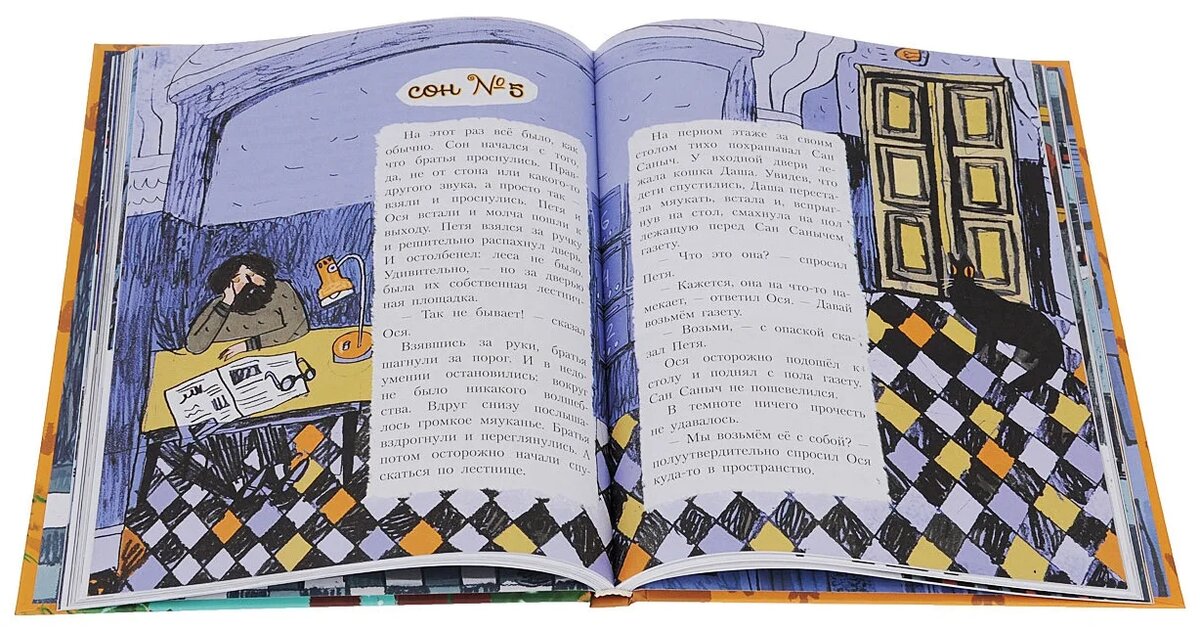 сон № 5
На этот раз всё было, как
обычно. Сон начался с того,
что братья проснулись. Прав-
да, не от стона или какого-то
другого звука, а просто так —
взяли и проснулись. Петя и
Ося встали и молча пошли к
выходу. Петя взялся за ручку
и решительно распахнул дверь.
И остолбенел: леса не было.
Удивительно, — но за дверью
была их собственная лестнич-
ная площадка.
— Так не бывает! — сказал
Ося.
Взявшись за руки, братья
шагнули за порог. И в недо-
умении остановились: вокруг
не было никакого волшеб-
ства. Вдруг снизу послыша-
лось громкое мяуканье. Братья
вздрогнули и переглянулись. А
потом осторожно начали спу-
скаться по лестнице.
На первом этаже за своим
столом тихо похрапывал Сан
Саныч. У входной двери ле-
жала кошка Даша. Увидев, что
дети спустились, Даша переста-
ла мяукать, встала и, вспрыг-
нув на стол, смахнула на пол
лежащую перед Сан Санычем
газету.
— Что это она? — спросил
Петя.
— Кажется, она на что-то на-
мекает, — ответил Ося. — Давай
возьмём газету.
— Возьми, — с опаской ска-
зал Петя.
Ося осторожно подошёл к
столу и поднял с пола газету.
Сан Саныч не пошевелился.
В темноте ничего прочесть
не удавалось.
— Мы возьмём её с собой? —
полуутвердительно спросил Ося
куда-то в пространство.